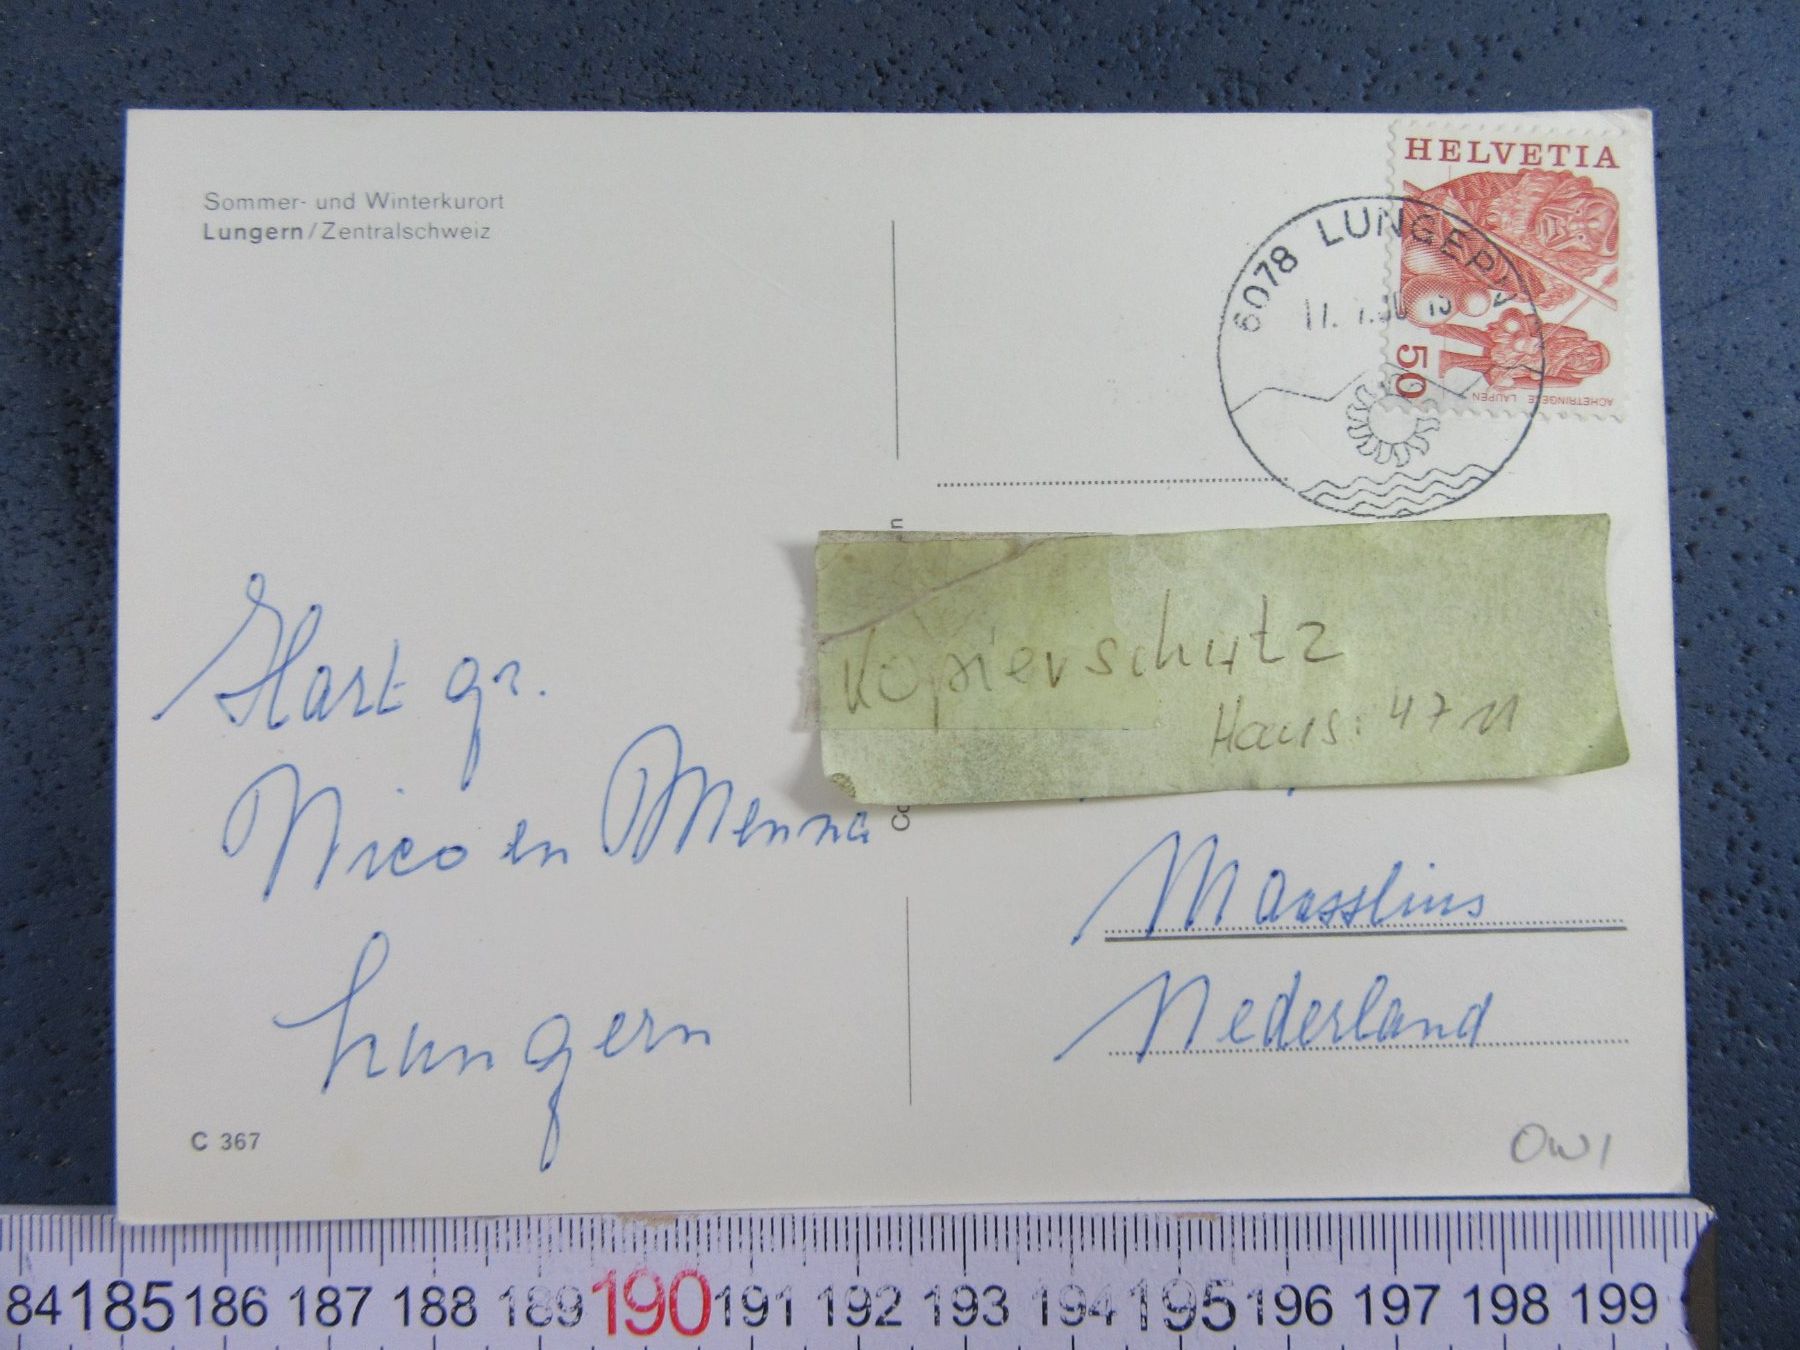 Sommer- und Winterkurort
Lungern/Zentralschweiz
HELVETIA
6078 LUNGERN
50
ACHETRINGELE LAUPEN
Kopierschutz
Haus: 4711
Hart gr.
Nico en Menna
Lungern
Maasslius
Nederland
C 367
OW1
84 185 186 187 188 189 190 191 192 193 194 195 196 197 198 199